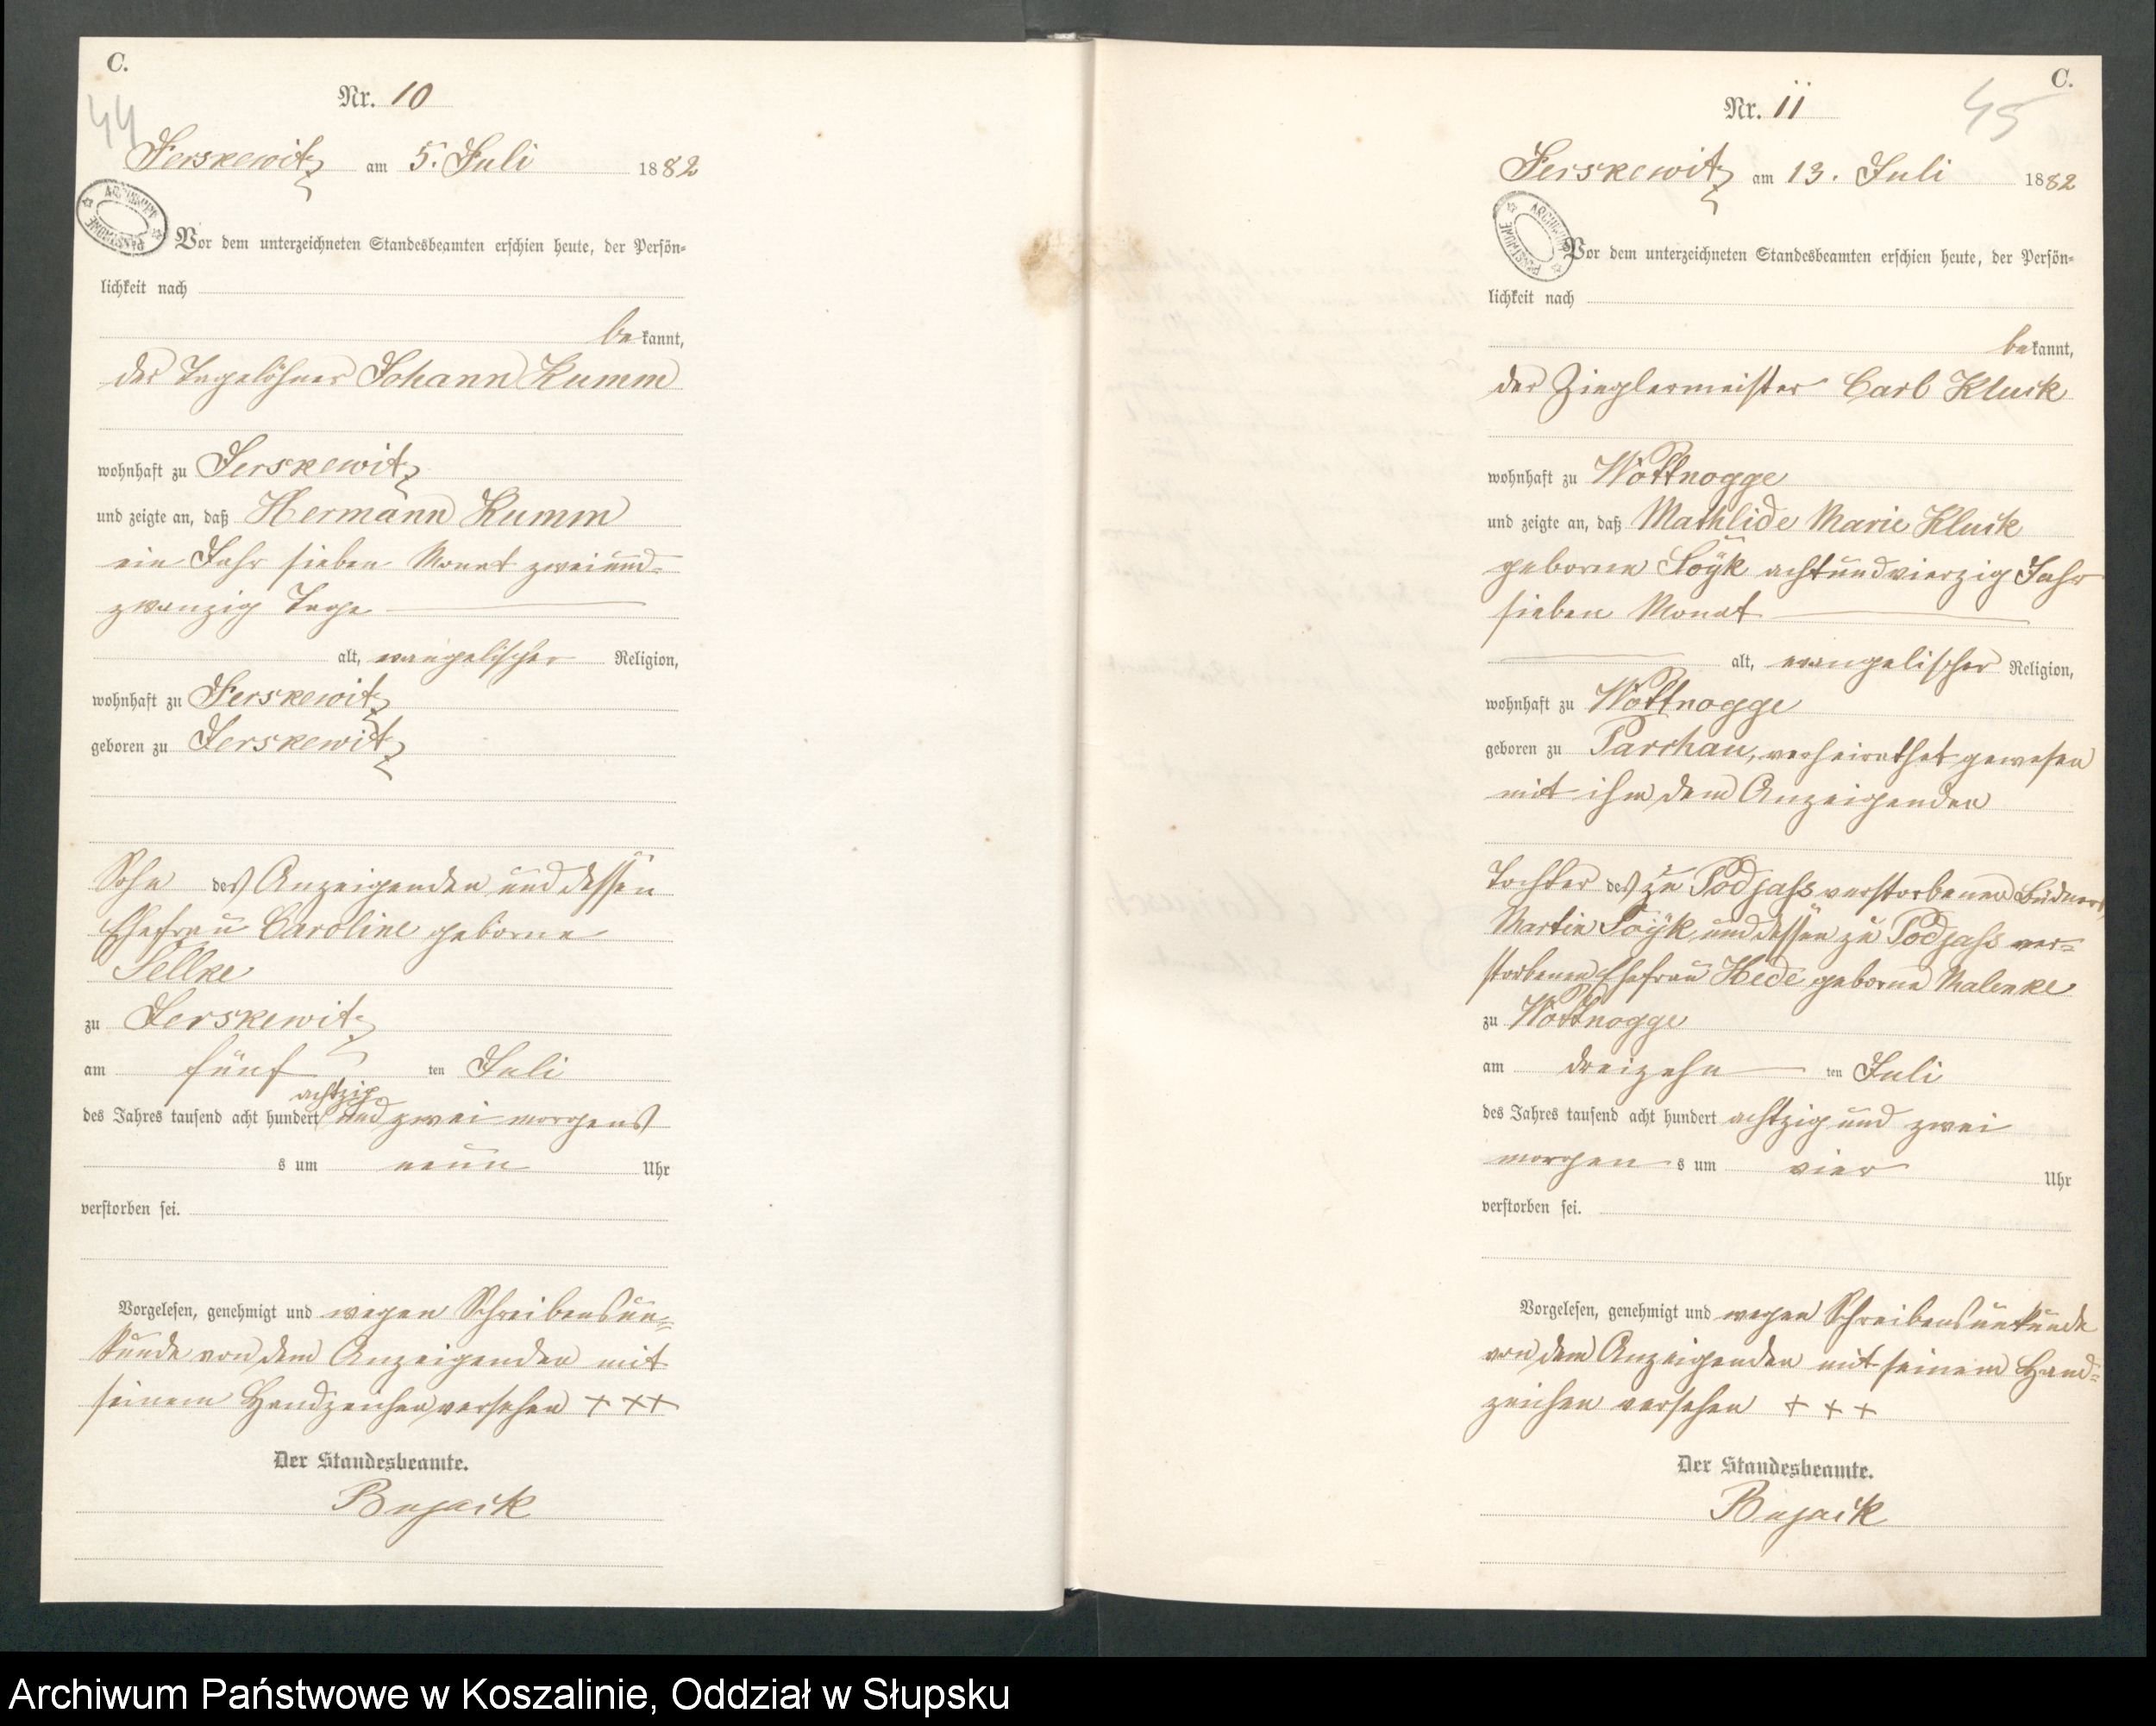 C.
Nr. 10
44
Jerskewitz am 5. Juli 1882
ARCHIWUM PAŃSTWOWE
Vor dem unterzeichneten Standesbeamten erschien heute, der Persön-
lichkeit nach
bekannt,
der Tagelöhner Johann Kumm
wohnhaft zu Jerskewitz
und zeigte an, daß Hermann Kumm
ein Jahr sieben Monat zweiund-
zwanzig Tage
alt, evangelischer Religion,
wohnhaft zu Jerskewitz
geboren zu Jerskewitz
Sohn des Anzeigenden und dessen
Ehefrau Caroline geborne
Sellke
zu Jerskewitz
am fünf ten Juli
achtzig
des Jahres tausend acht hundert und zwei morgens
s um neun Uhr
verstorben sei.
Vorgelesen, genehmigt und wegen Schreibensun-
kunde von dem Anzeigenden mit
seinem Handzeichen versehen + + +
Der Standesbeamte.
Bujack
C.
Nr. 11
45
Jerskewitz am 13. Juli 1882
ARCHIWUM PAŃSTWOWE
Vor dem unterzeichneten Standesbeamten erschien heute, der Persön-
lichkeit nach
bekannt,
der Zieglermeister Carl Kluck
wohnhaft zu Wottnogge
und zeigte an, daß Mathlide Marie Kluck
geborne Soÿk achtundvierzig Jahr
sieben Monat
alt, evangelischer Religion,
wohnhaft zu Wottnogge
geboren zu Parchau, verheirathet gewesen
mit ihm dem Anzeigenden
Tochter des zu Podjass verstorbenen Büdners
Martin Soÿk und dessen zu Podjass ver-
storbenen Ehefrau Hede geborne Malenke
zu Wottnogge
am dreizehn ten Juli
des Jahres tausend acht hundert achtzig und zwei
morgen s um vier Uhr
verstorben sei.
Vorgelesen, genehmigt und wegen Schreibensunkunde
von dem Anzeigenden mit seinem Hand-
zeichen versehen + + +
Der Standesbeamte.
Bujack
Archiwum Państwowe w Koszalinie, Oddział w Słupsku